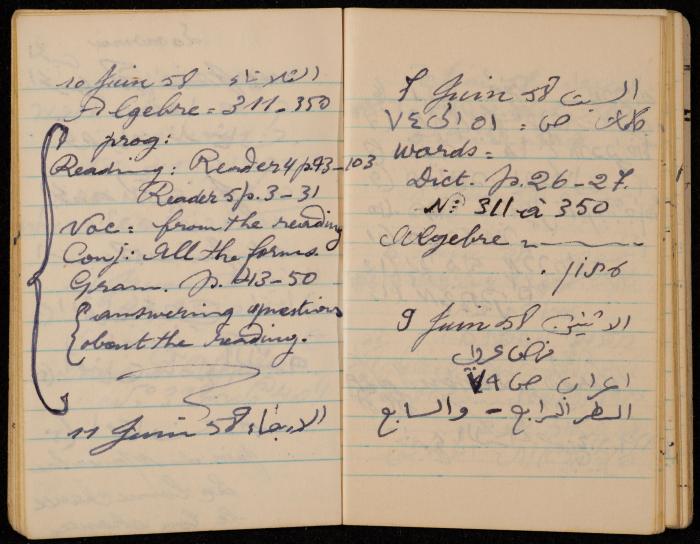 7 Juin 58 السبت
كلمات ص : ٥١ الى ٧٤
Words =
Dict. p. 26-27.
Nº 311 à 350
Algebre
פתרון .
9 Juin 58 الاثنين
فحص عربي
اعراب ص ٧٩
السطر الرابع - والسابع
10 Juin 58 الثلاثاء
Algebre = 311-350
prog:
Reading: Reader 4 p. 93-103
Reader 5 p. 3-31
Voc = from the reading
Conj: All the forms.
Gram. p. 43-50
answering questions
about the reading.
11 Juin 58 الاربعاء